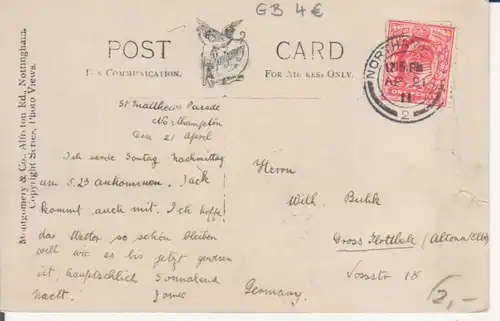 GB 4€
POST CARD
FOR COMMUNICATION.
FOR ADDRESS ONLY.
Montgomery & Co. Alfreton Rd., Nottingham.
Copyright Series, Photo Views.
NORTHAMPTON
12.15 PM
AP 21
11
2
ONE PENNY
St Matthews Parade
Northampton
Den 21 April
Ich werde Sontag Nachmittag
um 5.23 ankommen. Jack
kommt auch mit. Ich hoffe
das Wetter so schön bleiben
will wie es bis jetzt gewesen
ist hauptsächlich Sonnabend
Nacht.
James
Herrn
Wilh. Buhk
Gross Flottbek (Altona/Elbe)
Vossstr 18
Germany.
2,-